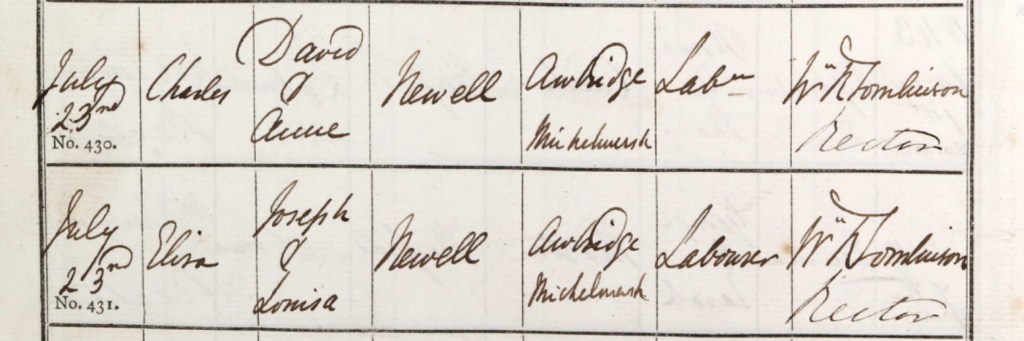 July
23rd
No. 430.
Charles
David
&
Anne
Newell
Awbridge
Michelmersh
Labr
Wm N Tomlinson
Rector
July
23rd
No. 431.
Eliza
Joseph
&
Louisa
Newell
Awbridge
Michelmersh
Labourer
Wm N Tomlinson
Rector